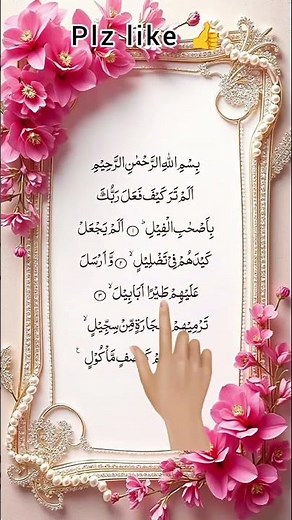 Plz like 👍
بِسْمِ اللّٰهِ الرَّحْمٰنِ الرَّحِيْمِ
اَلَمْ تَرَ كَيْفَ فَعَلَ رَبُّكَ
بِاَصْحٰبِ الْفِيْلِ ؕ ۝۱ اَلَمْ يَجْعَلْ
كَيْدَهُمْ فِيْ تَضْلِيْلٍ ۙ ۝۲ وَّ اَرْسَلَ
عَلَيْهِمْ طَيْرًا اَبَابِيْلَ ۙ ۝۳
تَرْمِيْهِمْ مِّنْ سِجِّيْلٍ ۙ
مَّاْكُوْلٍ